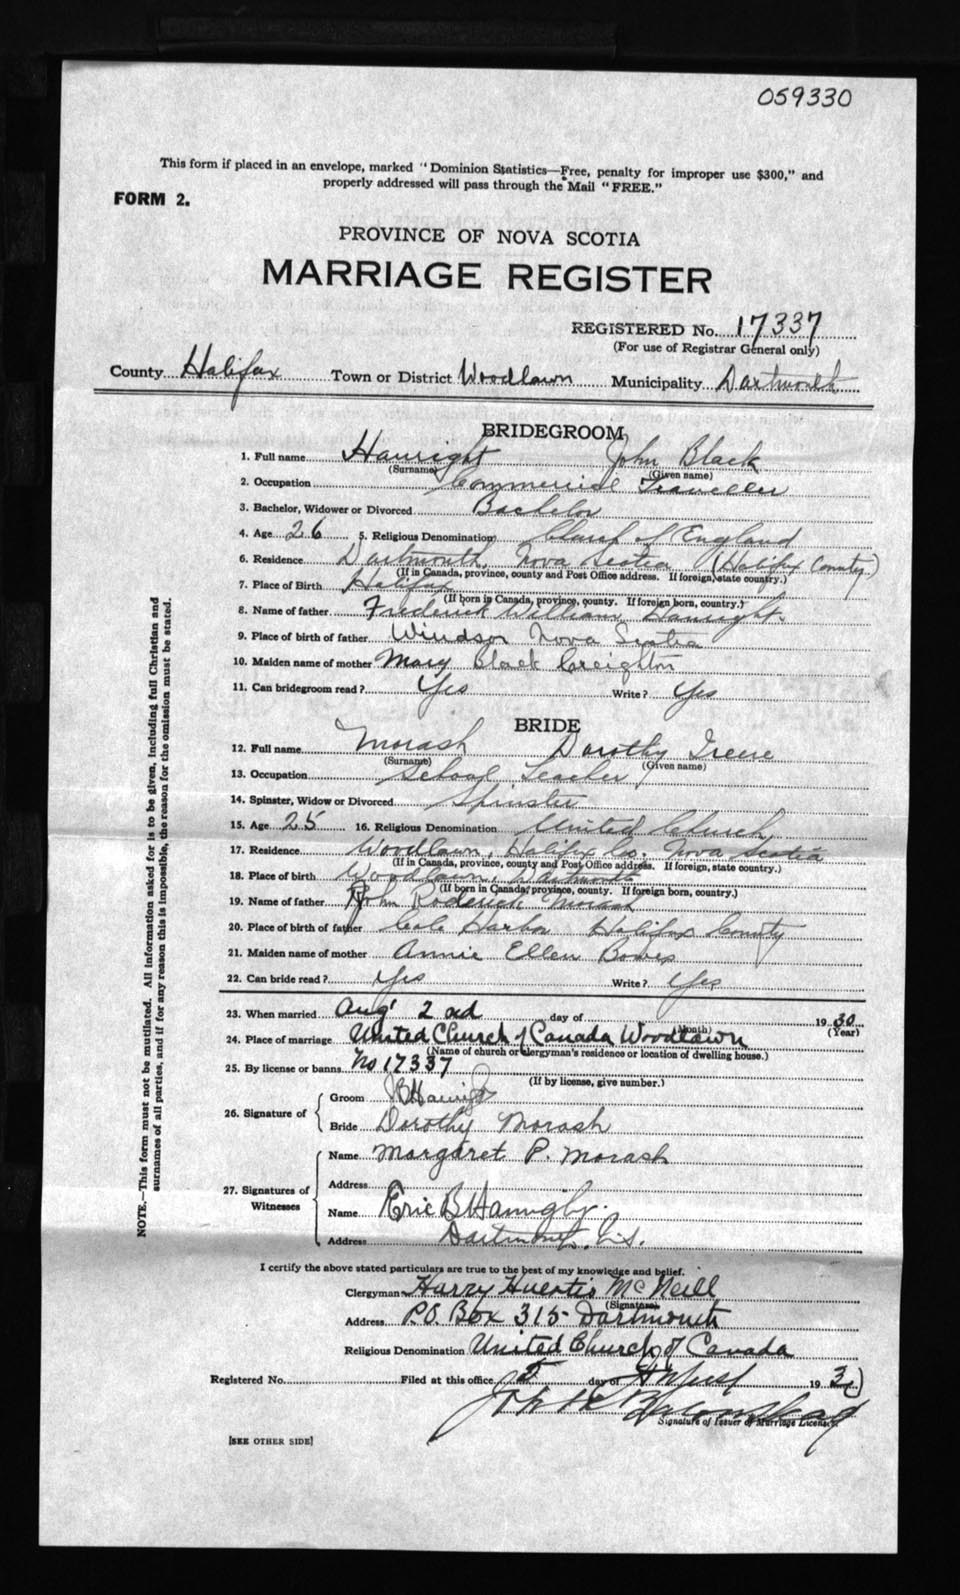 059330
This form if placed in an envelope, marked "Dominion Statistics—Free, penalty for improper use $300," and
properly addressed will pass through the Mail "FREE."
FORM 2.
PROVINCE OF NOVA SCOTIA
MARRIAGE REGISTER
REGISTERED No. 17337
(For use of Registrar General only)
County Halifax Town or District Woodlawn Municipality Dartmouth
BRIDEGROOM
1. Full name Hanright John Black
(Surname) (Given name)
2. Occupation Commercial Traveller
3. Bachelor, Widower or Divorced Bachelor
4. Age 26 5. Religious Denomination Church of England
6. Residence Dartmouth, Nova Scotia (Halifax County)
(If in Canada, province, county and Post Office address. If foreign, state country.)
7. Place of Birth Halifax
(If born in Canada, province, county. If foreign born, country.)
8. Name of father Frederick William Hanright.
9. Place of birth of father Windsor Nova Scotia
10. Maiden name of mother Mary Black Creighton
11. Can bridegroom read? Yes Write? Yes
BRIDE
12. Full name Morash Dorothy Irene
(Surname) (Given name)
13. Occupation School Teacher
14. Spinster, Widow or Divorced Spinster
15. Age 25 16. Religious Denomination United Church
17. Residence Woodlawn, Halifax Co. Nova Scotia
(If in Canada, province, county and Post Office address. If foreign, state country.)
18. Place of birth Woodlawn, Dartmouth
(If born in Canada, province, county. If foreign born, country.)
19. Name of father John Roderick Morash
20. Place of birth of father Cole Harbor Halifax County
21. Maiden name of mother Annie Ellen Bowes
22. Can bride read? Yes Write? Yes
23. When married Aug' 2nd day of 1930
(Month) (Year)
24. Place of marriage United Church of Canada Woodlawn
(Name of church or clergyman's residence or location of dwelling house.)
25. By license or banns No 17337
(If by license, give number.)
26. Signature of
Groom JB Hanright
Bride Dorothy Morash
27. Signatures of Witnesses
Name Margaret P. Morash
Address
Name Eric B Hanright.
Address Dartmouth, N.S.
I certify the above stated particulars are true to the best of my knowledge and belief.
Clergyman Harry Huestis McNeill
(Signature)
Address P.O. Box 315 Dartmouth
Religious Denomination United Church of Canada
Registered No. Filed at this office 5 day of August 1930
John
Signature of Issuer of Marriage License.
[SEE OTHER SIDE]
NOTE.—This form must not be mutilated. All information asked for is to be given, including full Christian and
surnames of all parties, and if for any reason this is impossible, the reason for the omission must be stated.